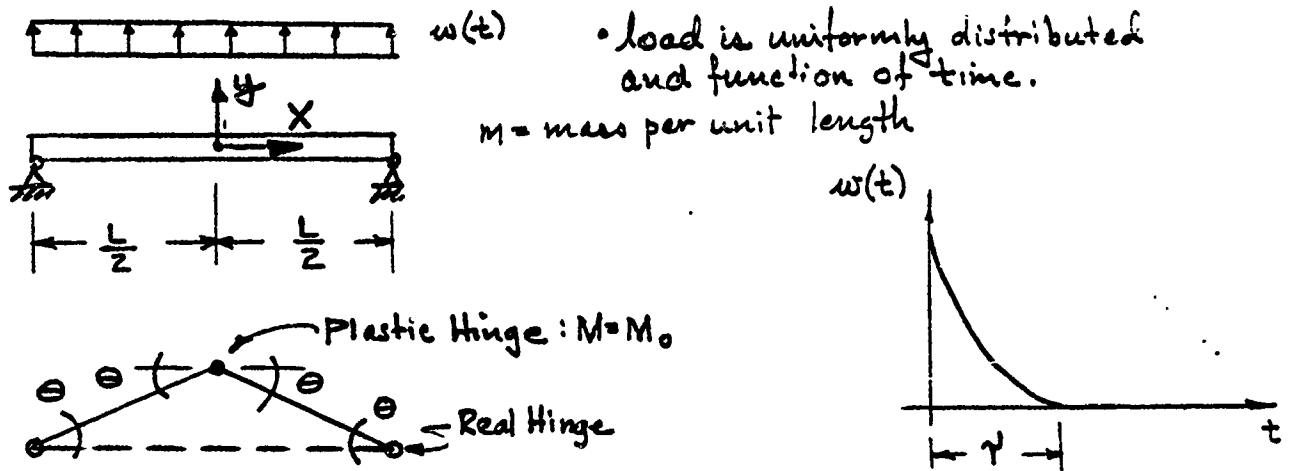 w(t)
• load is uniformly distributed
and function of time.
y
x
m = mass per unit length
w(t)
L/2
L/2
Plastic Hinge : M=M₀
θ
θ
θ
θ
Real Hinge
t
τ